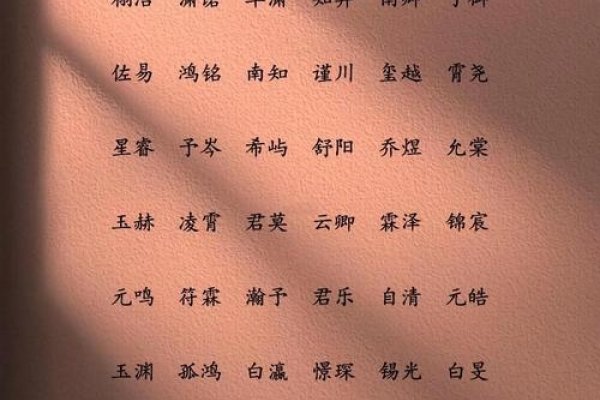 佐易 鸿铭 南知 谨川 玺越 霄尧
星睿 予岑 希屿 舒阳 乔煜 允棠
玉赫 凌霄 君莫 云卿 霖泽 锦宸
元鸣 符霖 瀚予 君乐 自清 元皓
玉渊 孤鸿 白瀛 憬琛 锡光 白旻